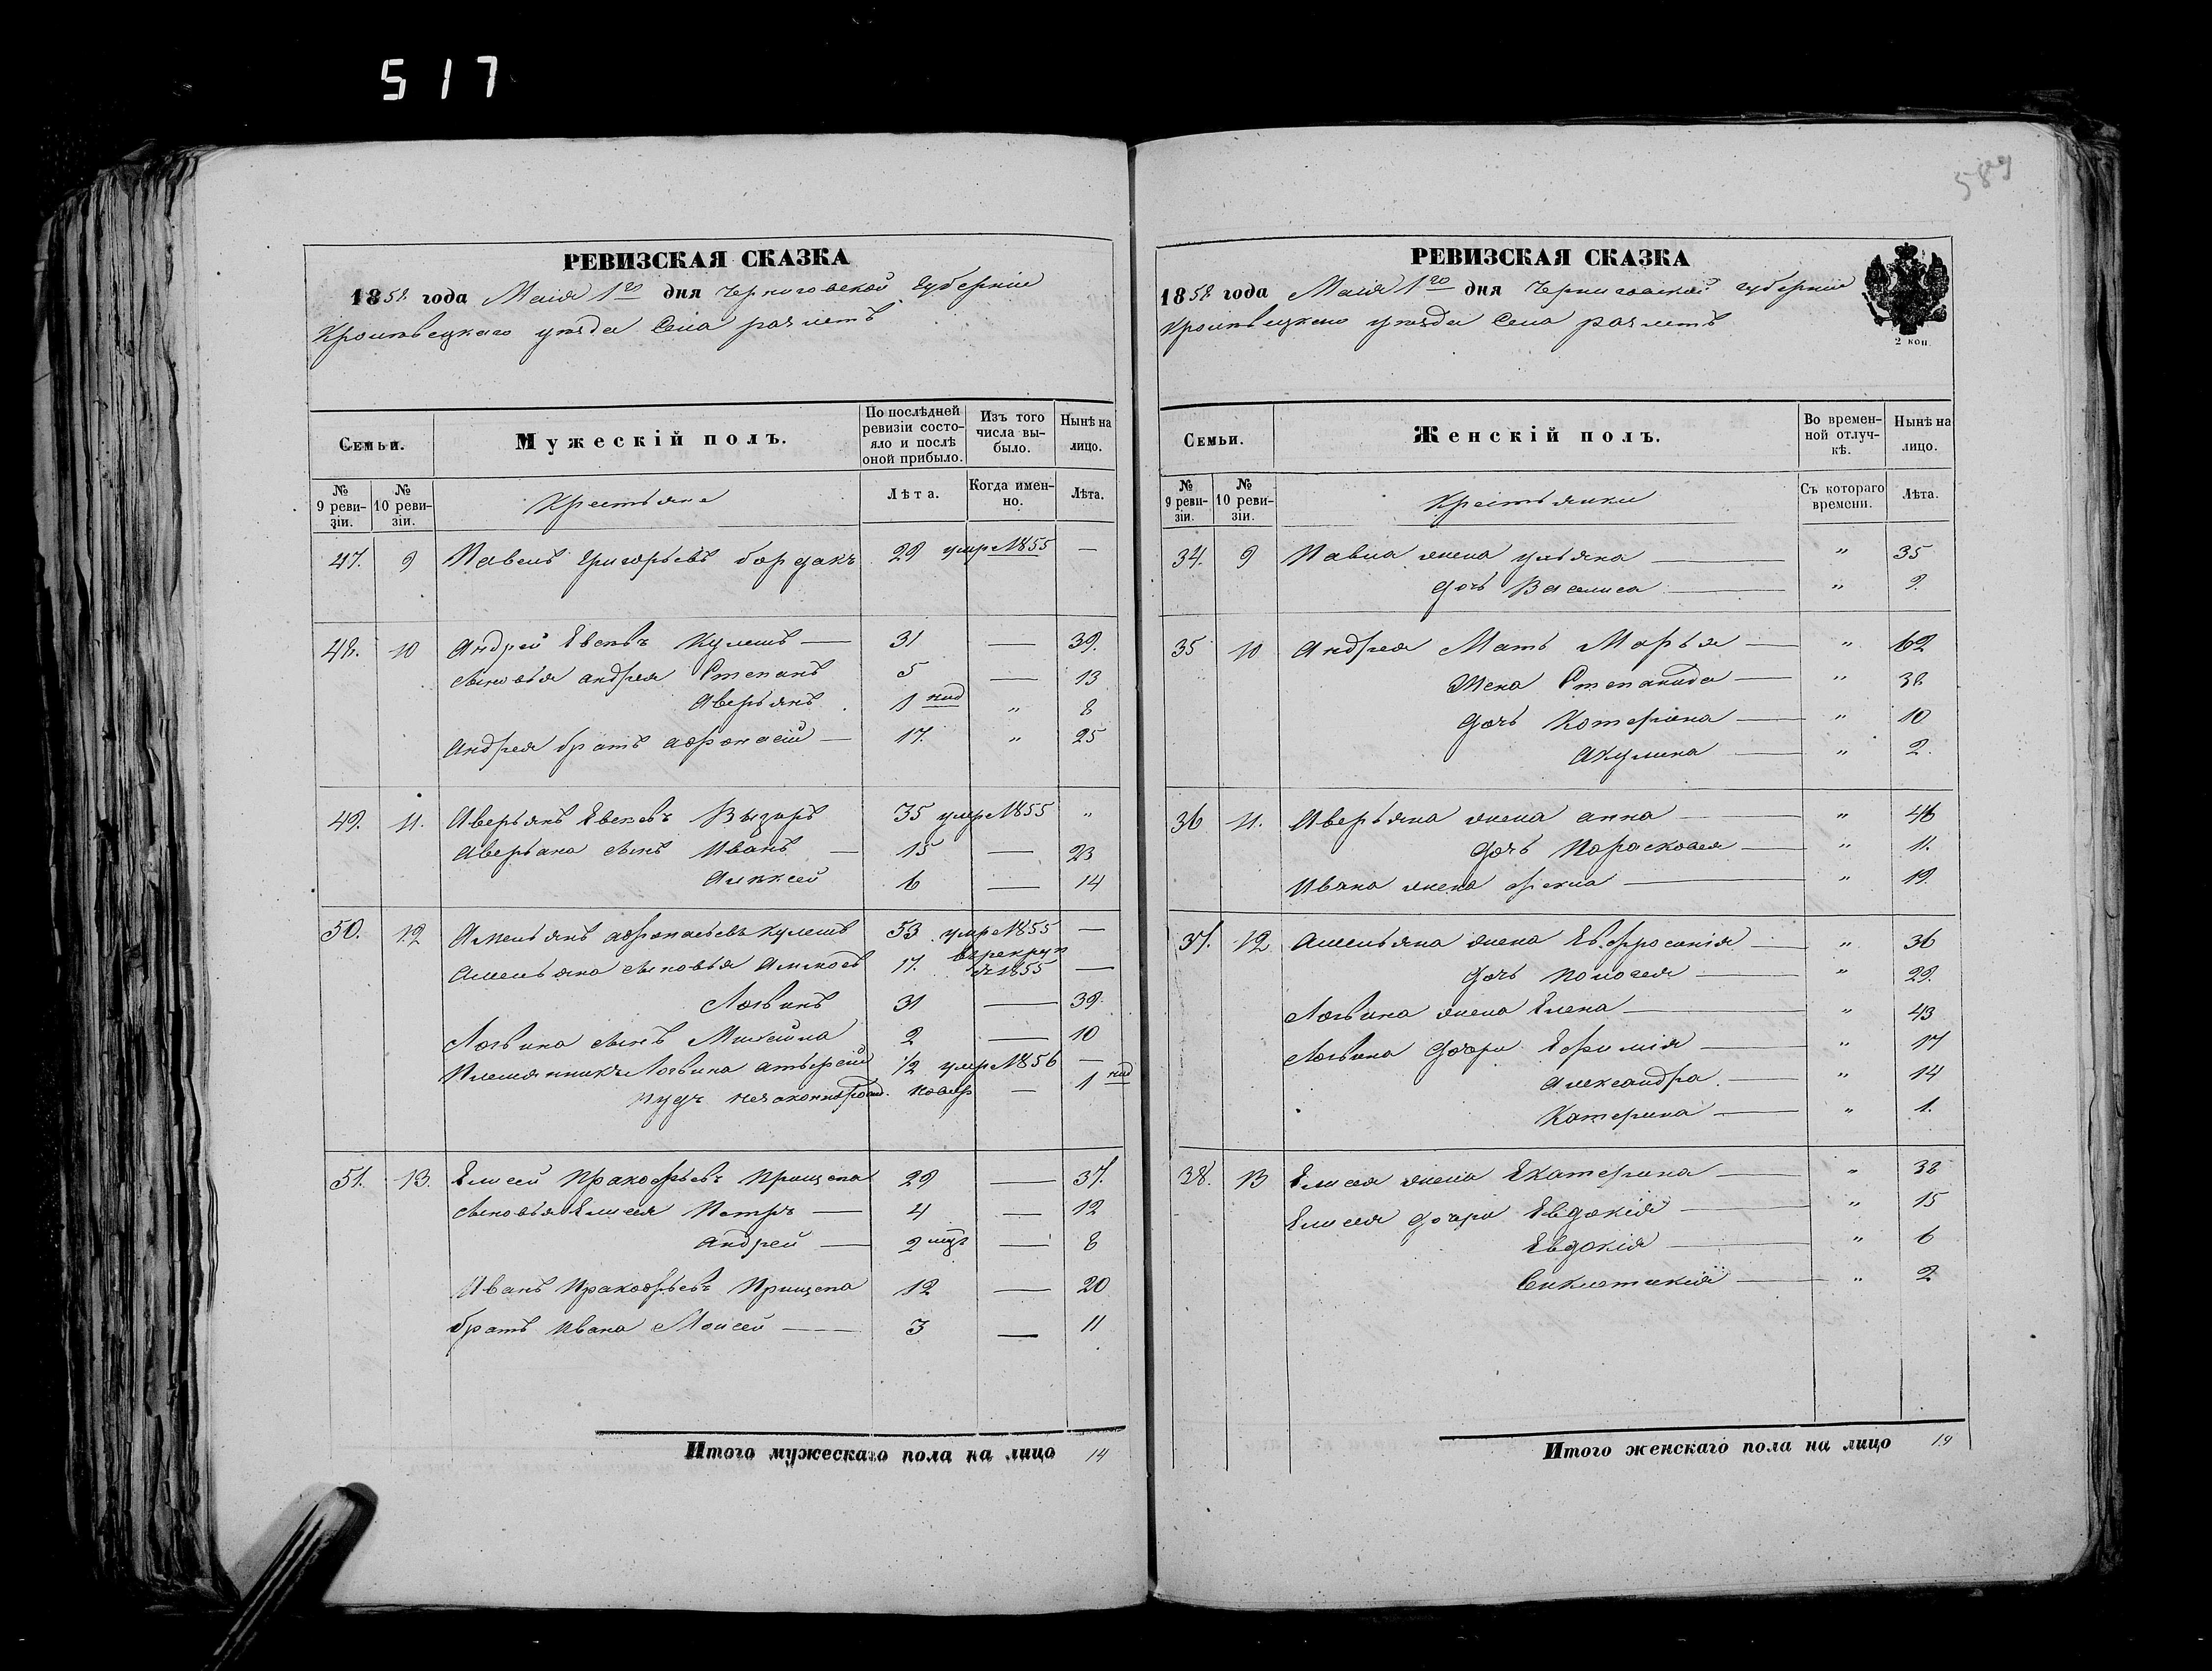 517
589
РЕВИЗСКАЯ СКАЗКА
1858 года Маія 1го дня Черниговской губерніи
Кролевецкаго уѣзда Села
Семьи.
Мужескій полъ.
По послѣдней ревизіи состояло и послѣ оной прибыло.
Изъ того числа выбыло.
Нынѣ на лицо.
№ 9 ревизіи.
№ 10 ревизіи.
Крестьяне
Лѣта.
Когда именно.
Лѣта.
47. 9 Павелъ Григорьевъ бордакъ 29 умре 1855 —
48. 10 Андрей Кулешъ — 31 — 39.
сыновья андрея Степанъ 5 — 13
Аверьянъ 1 нид " 8
Андрея братъ афонасій — 17. " 25
49. 11. Аверьянъ 35 умре 1855 "
Аверьяна сынъ Иванъ — 15 — 23
Алѣксей 6 — 14
50. 12 Амельянъ афонасьевъ кулешъ 53 умре 1855 —
Амельяна сыновья 17. 1855 —
Логвинъ 31 — 39.
Логвина сынъ Михайла 2 — 10
Племянникъ Логвина 1/2 умре 1856 —
незаконнорожд. — 1 нид
51. 13. Елисей Пракофьевъ Прищепа 29 — 37.
сыновья Елисея Петръ — 4 — 12
Андрей — 2 — 8
Иванъ Пракофьевъ Прищепа 12 — 20
братъ Ивана Моисей — 3 — 11
Итого мужескаго пола на лицо 14
РЕВИЗСКАЯ СКАЗКА
1858 года Маія 1го дня Черниговской губерніи
Кролевецкаго уѣзда Села
2 коп.
Семьи.
Женскій полъ.
Во временной отлучкѣ.
Нынѣ на лицо.
№ 9 ревизіи.
№ 10 ревизіи.
Крестьянки
Съ котораго времени.
Лѣта.
34. 9 Павла жена ульяна — " 35
дочь Василиса — " 9.
35 10 Андрея Мать Марья — " 62
Жена Степанида — " 38
дочь Катерина — " 10
Акулина — " 2.
36 11. Аверьяна жена анна — " 46
дочь Парасковея — " 11.
Ивана жена фекла — " 19.
37. 12 Амельяна жена Евфросинія — " 36
дочь Пелагея — " 29.
Логвина жена Елена — " 43
Логвина дочери Ефимія — " 17
Александра — " 14
Катерина — " 1.
38. 13 Елисея жена Екатерина — " 38
Елисея дочери Евдокія — " 15
Евдокія — " 6
Синклетикія — " 2
Итого женскаго пола на лицо 19